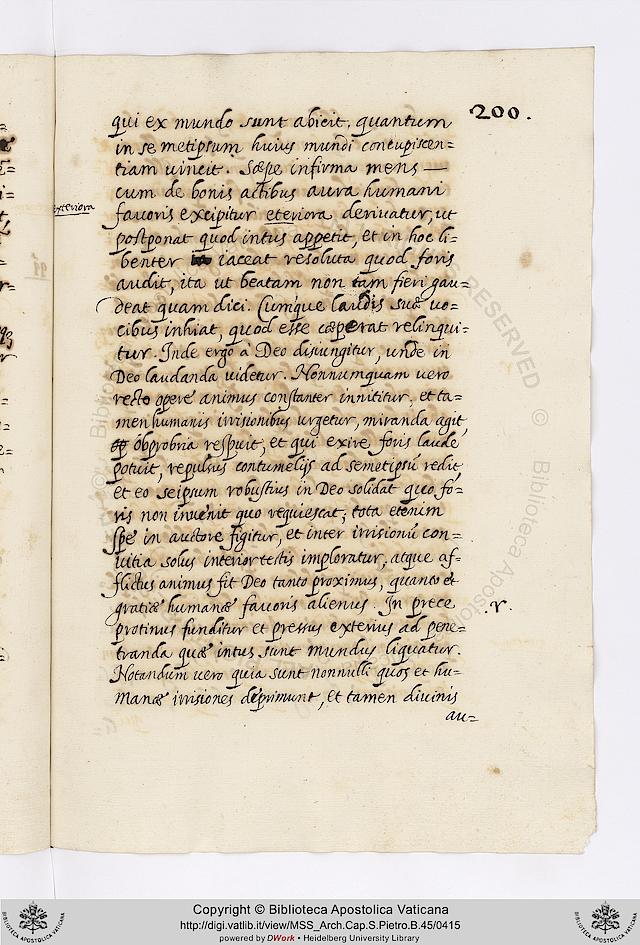 200.
qui ex mundo sunt abicit, quantum
in se metipsum huius mundi concupiscen=
tiam vincit. Sæpe infirma mens —
cum de bonis actibus aura humani
exteriora
favoris excipitur eteriora derivatur, ut
postponat quod intus appetit, et in hoc li=
benter iaceat resoluta quod foris
audit, ita ut beatam non tam fieri gau=
deat quam dici. Cumque laudis suæ vo=
cibus inhiat, quod esse cæperat relinqui=
tur. Inde ergo à Deo disiungitur, unde in
Deo laudanda videtur. Nonnumquam vero
recto opere animus constanter innititur, et ta=
men humanis irrisionibus urgetur, miranda agit,
obprobria respuit, et qui exire foris laude
potuit, repulsus contumelijs ad semetipsū redit,
et eo seipsum robustius in Deo solidat quo fo=
ris non invenit quo requiescat; tota etenim
spe in auctore figitur, et inter irrisionū con=
vitia solus interior testis imploratur, atque af=
flictus animus fit Deo tanto proximus, quanto et
gratiæ humanæ favoris alienus. In prece
.r.
protinus funditur et pressus exterius ad pene=
tranda quæ intus sunt mundus liquatur.
Notandum vero quia sunt nonnulli quos et hu=
manæ irrisiones deprimunt, et tamen divinis
au=
Copyright © Biblioteca Apostolica Vaticana
http://digi.vatlib.it/view/MSS_Arch.Cap.S.Pietro.B.45/0415
powered by DWork • Heidelberg University Library